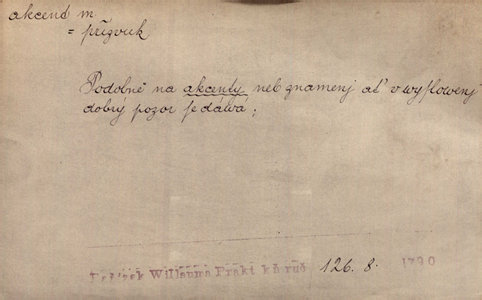 akcend m
= přízvuk
Podobně na akcenty neb znamenj ať v wyslowenj
dobrý pozor se dáwá;
Willenna Prakt kň ruč 126. 8. 1790